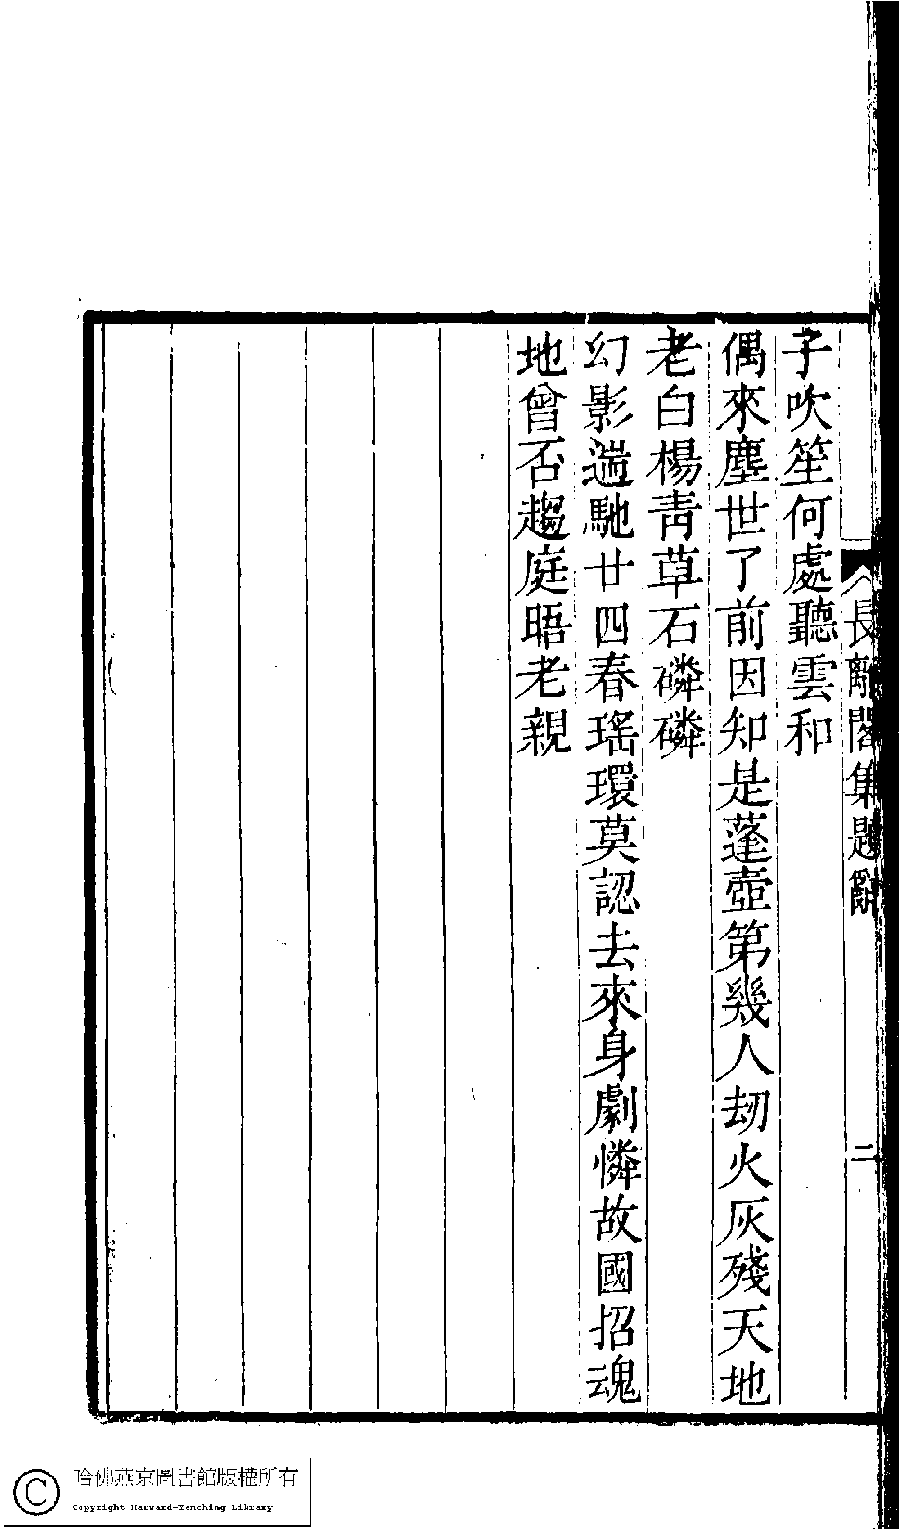 長離閣集題辭
二
子吹笙何處聽雲和
偶來塵世了前因知是蓬壺第幾人刧火灰殘天地
老白楊青草石磷磷
幻影遄馳廿四春瑤環莫認去來身劇憐故國招魂
地曾否趨庭晤老親
哈佛燕京圖書館版權所有
Copyright Harvard-Yenching Library